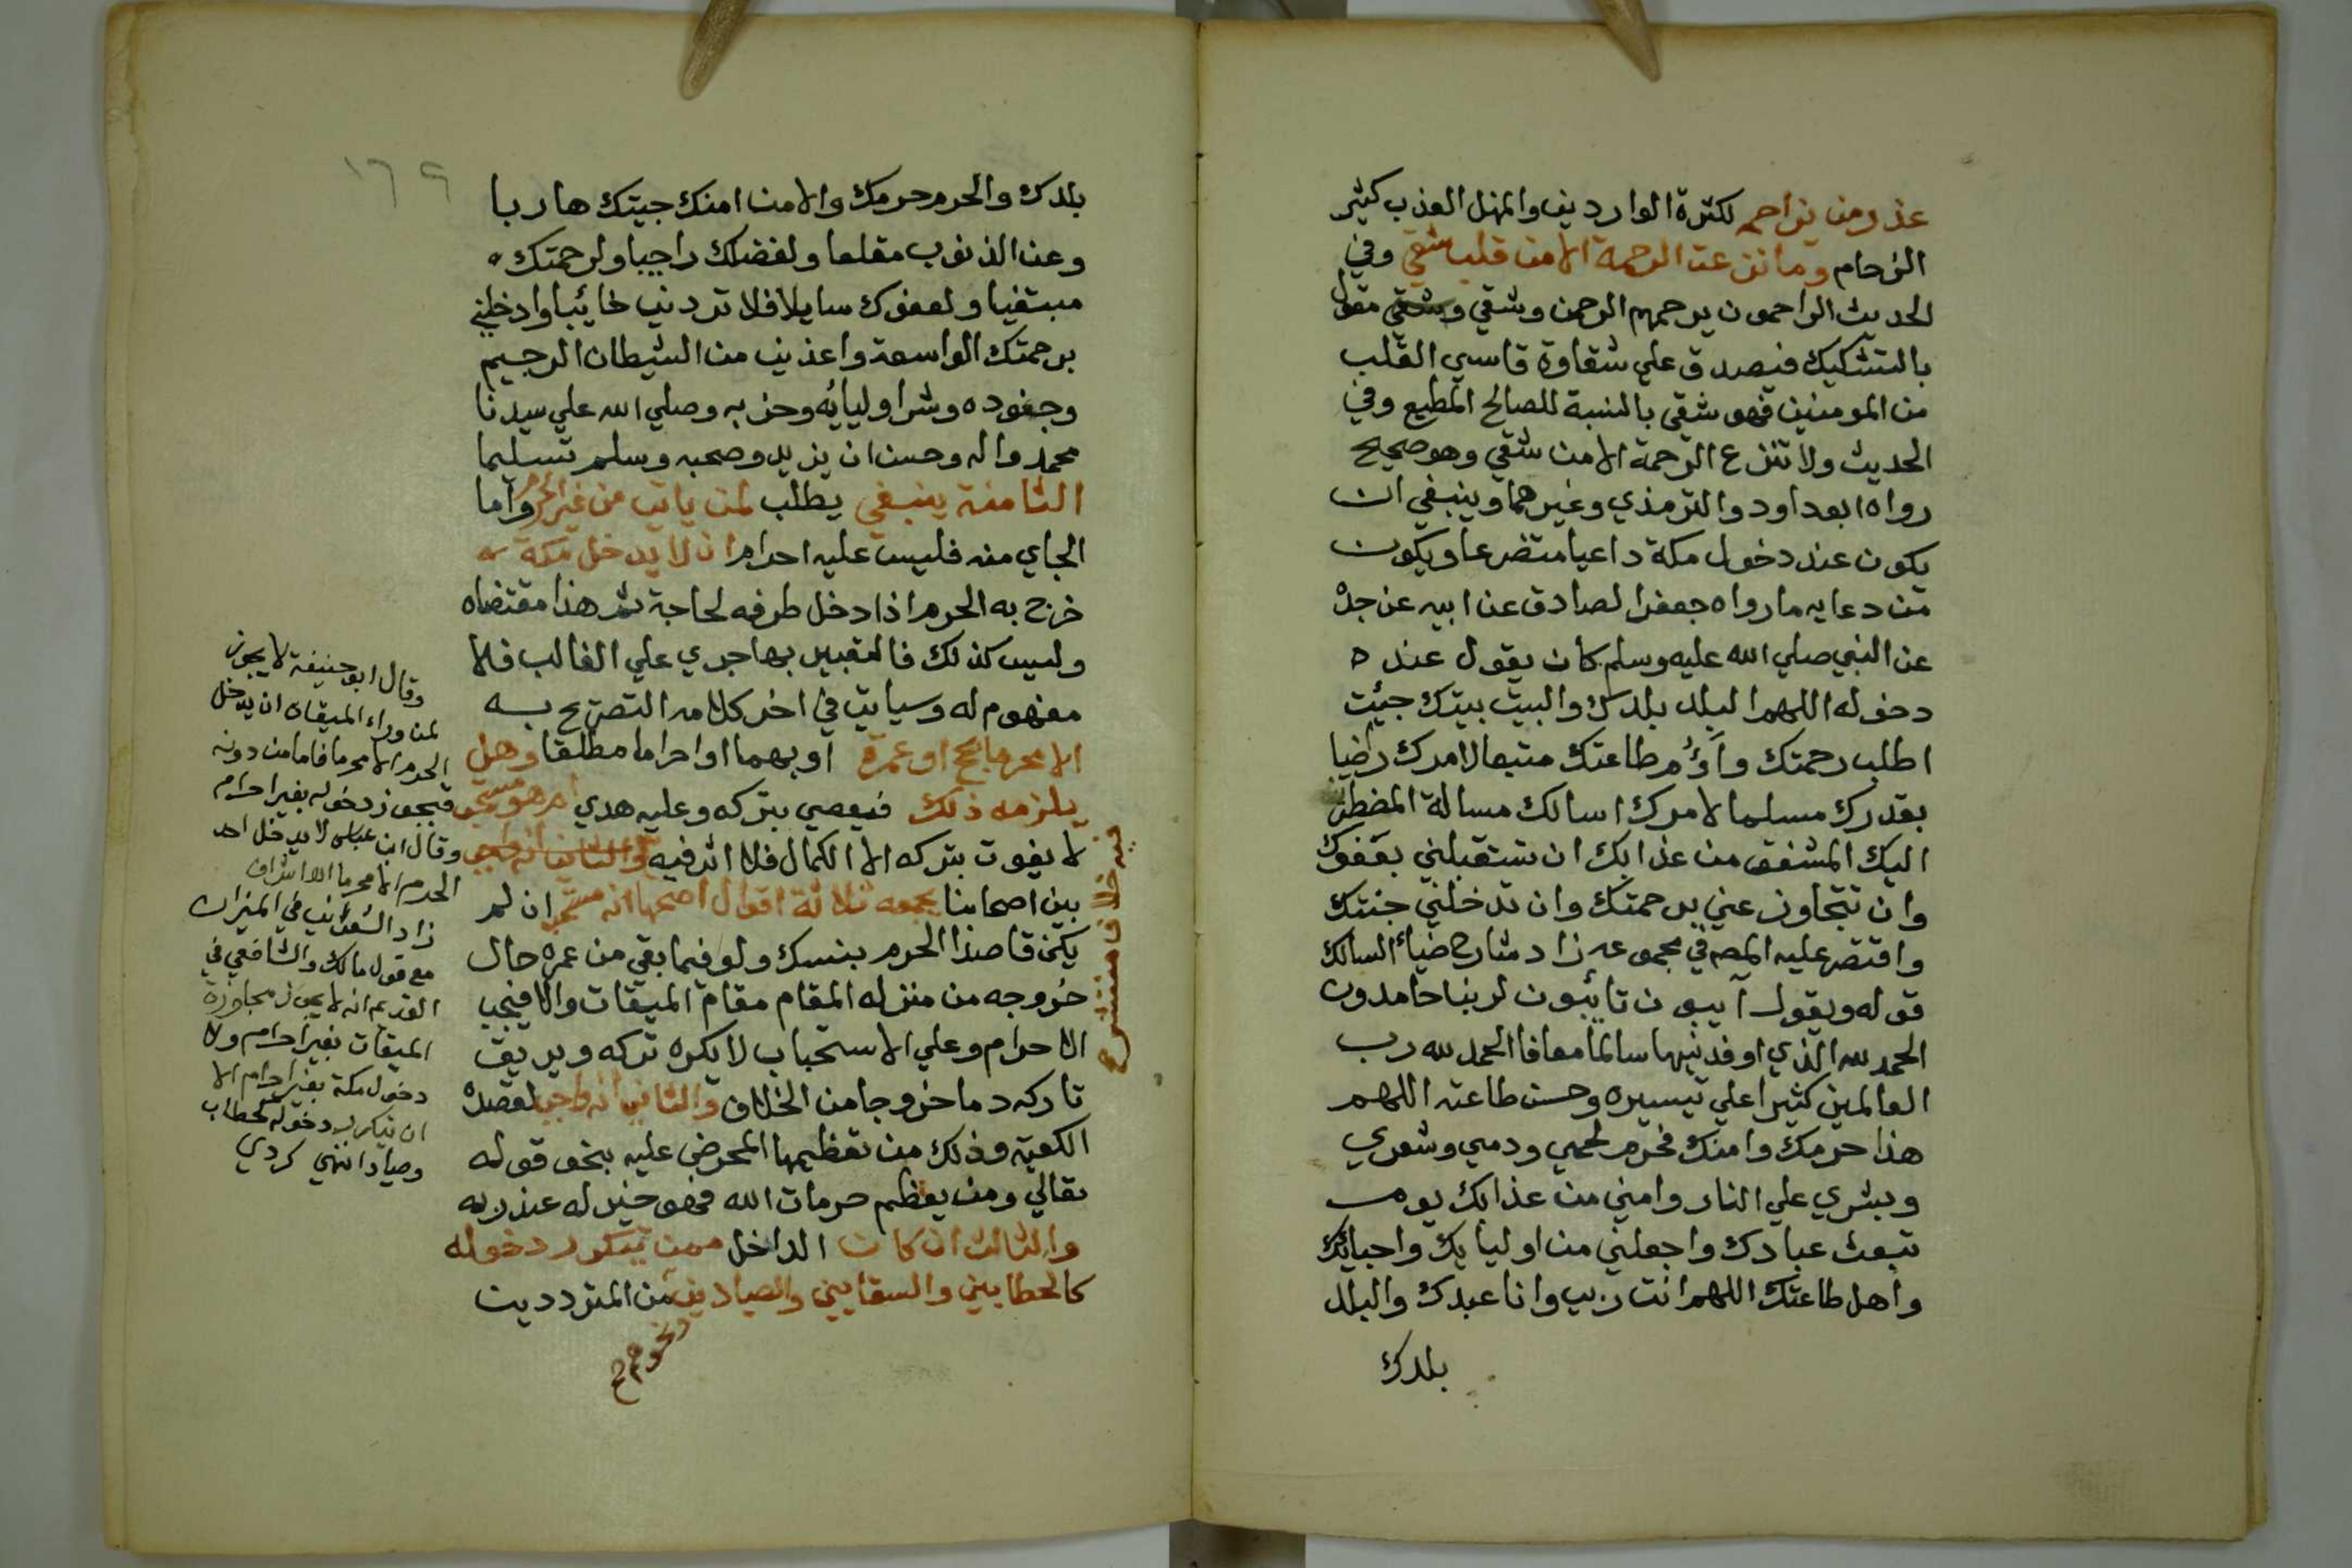 عذر من يزاحمه لكثرة الواردين والمنهل العذب كثير
الزحام وما نزعت الرحمة الا من قلب شقي وفي
الحديث الراحمون يرحمهم الرحمن وشقي مقول
بالتشكيك فيصدق علي شقاوة قاسي القلب
من المومنين فهو شقي بالنسبة للصالح المطيع وفي
الحديث ولا تنزع الرحمة الا من شقي وهو صحيح
رواه ابوداود والترمذي وغيرهما وينبغي ان
يكون عند دخول مكة داعيا متضرعا ويكون
من دعايه ما رواه جعفر الصادق عن ابيه عن جده
عن النبي صلي الله عليه وسلم كان يقول عند
دخوله اللهم البلد بلدك والبيت بيتك جيئت
اطلب رحمتك وأؤم طاعتك متبعا لامرك راضيا
بقدرك مسلما لامرك اسالك مسالة المضطر
اليك المشفق من عذابك ان تستقبلني بعفوك
وان تتجاوز عني برحمتك وان تدخلني جنتك
واقتصر عليه المصه في مجموعه زاد شارح ضياء السالك
قوله ويقول آيبون تائبون لربنا حامدون
الحمد لله الذي اوفدنيها سالما معافا الحمد لله رب
العالمين كثيرا علي تيسيره وحسن طاعته اللهم
هذا حرمك وامنك فحرم لحمي ودمي وشعري
وبشري علي النار وامني من عذابك يوم
تبعث عبادك واجعلني من اوليايك واحبائك
واهل طاعتك اللهم انت ربي وانا عبدك والبلد
بلدك
١٦٩
بلدك والحرم حرمك والامن امنك جيتك هاربا
وعن الذنوب مقلعا ولفضلك راجيا ولرحمتك
مبتغيا ولعفوك سايلا فلا تردني خائبا وادخلني
برحمتك الواسعة واعذني من الشيطان الرجيم
وجنوده وشر اوليايه وحزبه وصلي الله علي سيدنا
محمد واله وحسن ان يزيد وصحبه وسلم تسليما
الثامنة ينبغي يطلب لمن ياتي من غير الحرم واما
الجاي منه فليس عليه احرام ان لا يدخل مكة
خرج به الحرم اذا دخل طرفه لحاجة ثم هذا مقتضاه
وليس كذلك فالتقييد بها جري علي الغالب فلا
مفهوم له وسياتي في اخر كلامه التصريح به
الا محرما بحج او عمرة او بهما او احراما مطلقا وهل
يلزمه ذلك فيعصي بتركه وعليه هدي ام هو مستحب
لا يفوت بتركه الا الكمال فلا اثر فيه
بين اصحابنا يجمعه ثلاثة اقوال اصحها انه مستحب ان لم
يكن قاصدا الحرم بنسك ولو فيما بقي من عمره حال
خروجه من منزله المقام مقام الميقات والا فيجب
الاحرام وعلي الاستحباب لا يكره تركه ويريق
تاركه دما خروجا من الخلاف والثاني انه واجب لقصده
الكعبة وذلك من تعظيمها المحرض عليه بنحو قوله
تعالي ومن يعظم حرمات الله فهو خير له عند ربه
والثالث ان كان الداخل ممن يتكرر دخوله
كالحطابين والسقايين والصيادين من المترددين
ونحوهم
فيه خلاف منتشر
وقال ابو حنيفة لا يجوز
لمن وراء الميقات ان يدخل
الحرم الا محرما فاما من دونه
فيجوز دخوله بغير احرام
وقال ابن عباس لا يدخل احد
الحرم الا محرما
زاد الشعراني في الميزان
مع قول مالك والشافعي في
القديم انه لا يجوز مجاوزة
الميقات بغير احرام ولا
دخول مكة بغير احرام الا
ان يتكرر دخوله كحطاب
وصياد انتهي كردي